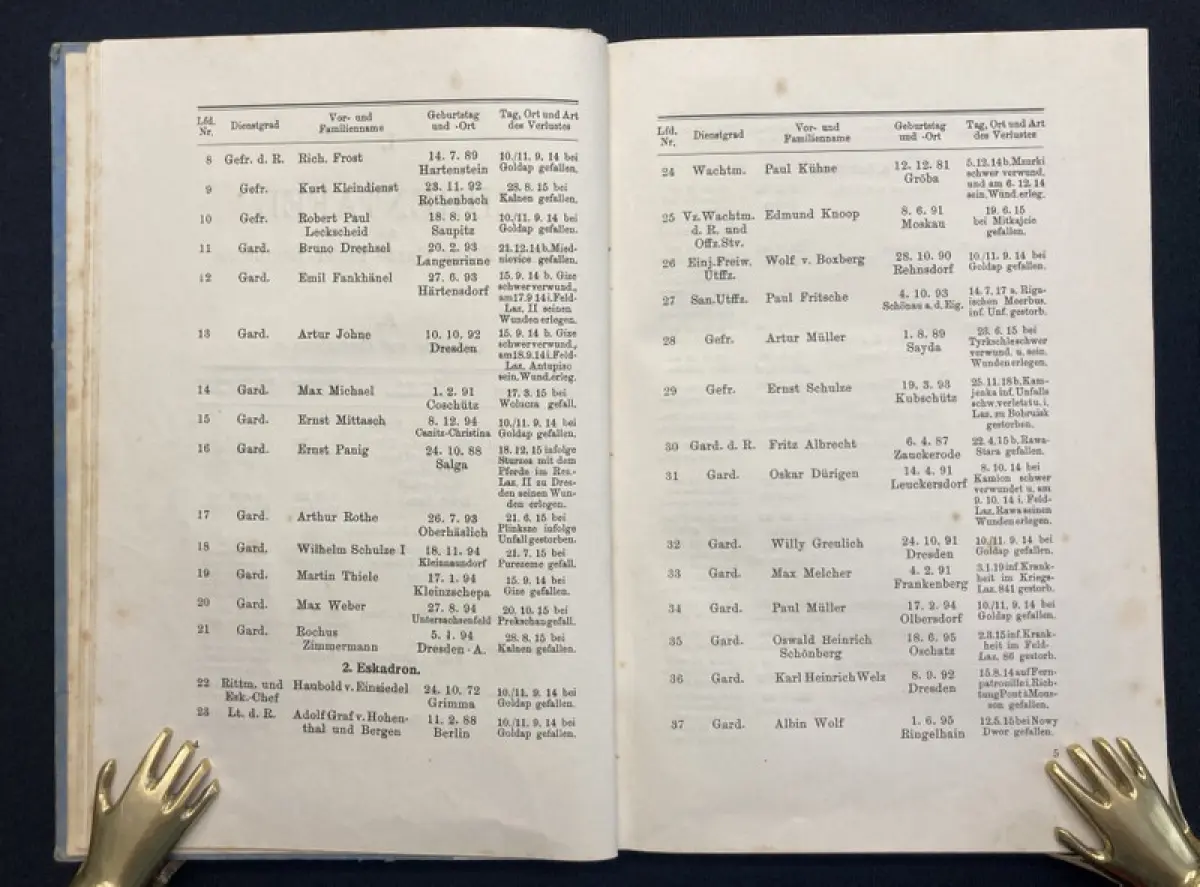 Lfd. Nr. Dienstgrad Vor- und Familienname Geburtstag und -Ort Tag, Ort und Art des Verlustes
8 Gefr. d. R. Rich. Frost 14. 7. 89 10./11. 9. 14 bei
Hartenstein Goldap gefallen.
9 Gefr. Kurt Kleindienst 23. 11. 92 28. 8. 15 bei
Rothenbach Kalnen gefallen.
10 Gefr. Robert Paul 18. 8. 91 10./11. 9. 14 bei
Leckscheid Saupitz Goldap gefallen.
11 Gard. Bruno Drechsel 20. 2. 93 21.12.14 b. Mied-
Langenrinne nievice gefallen.
12 Gard. Emil Fankhänel 27. 6. 93 15. 9. 14 b. Gize
Härtensdorf schwer verwund.,
am 17.9 14 i. Feld-
Laz. II seinen
Wunden erlegen.
13 Gard. Artur Johne 10. 10. 92 15. 9. 14 b. Gize
Dresden schwer verwund.,
am 18.9.14 i. Feld-
Laz. Antupiso
sein. Wund. erleg.
14 Gard. Max Michael 1. 2. 91 17. 3. 15 bei
Coschütz gefall.
15 Gard. Ernst Mittasch 8. 12. 94 10./11. 9. 14 bei
Canitz-Christina Goldap gefallen.
16 Gard. Ernst Panig 24. 10. 88 18. 12. 15 infolge
Salga Sturzes mit dem
Pferde im Res.-
Laz. II zu Dres-
den seinen Wun-
den erlegen.
17 Gard. Arthur Rothe 26. 7. 93 21. 6. 15 bei
Oberhäslich Plinksze infolge
Unfall gestorben.
18 Gard. Wilhelm Schulze I 18. 11. 94 21. 7. 15 bei
Kleinnaundorf Purezeme gefall.
19 Gard. Martin Thiele 17. 1. 94 15. 9. 14 bei
Kleinzschepa Gize gefallen.
20 Gard. Max Weber 27. 8. 94 20. 10. 15 bei
Untersachsenfeld Prekschan gefall.
21 Gard. Rochus 5. 1. 94 28. 8. 15 bei
Zimmermann Dresden-A. Kalnen gefallen.
2. Eskadron.
22 Rittm. und Haubold v. Einsiedel 24. 10. 72 10./11. 9. 14 bei
Esk.-Chef Grimma Goldap gefallen.
23 Lt. d. R. Adolf Graf v. Hohen- 11. 2. 88 10./11. 9. 14 bei
thal und Bergen Berlin Goldap gefallen.
4
Lfd. Nr. Dienstgrad Vor- und Familienname Geburtstag und -Ort Tag, Ort und Art des Verlustes
24 Wachtm. Paul Kühne 12. 12. 81 5.12.14 b. Mzurki
Gröba schwer verwund.
und am 6. 12. 14
sein. Wund. erleg.
25 Vz. Wachtm. Edmund Knoop 8. 6. 91 19. 6. 15
d. R. und Moskau bei Mitkajcie
Offz. Stv. gefallen.
26 Einj. Freiw. Wolf v. Boxberg 28. 10. 90 10./11. 9. 14 bei
Utffz. Rehnsdorf Goldap gefallen.
27 San. Utffz. Paul Fritsche 4. 10. 93 14. 7. 17 a. Riga-
Schönau a. d. Eig. ischen Meerbus.
inf. Unf. gestorb.
28 Gefr. Artur Müller 1. 8. 89 23. 6. 15 bei
Sayda Tyrkschle schwer
verwund. u. sein.
Wunden erlegen.
29 Gefr. Ernst Schulze 19. 3. 93 25. 11. 18 b. Kam-
Kubschütz jenka inf. Unfalls
schw. verletzt u. i.
Laz. zu Bobruisk
gestorben.
30 Gard. d. R. Fritz Albrecht 6. 4. 87 22. 4. 15 b. Rawa-
Zauckerode Stara gefallen.
31 Gard. Oskar Dürigen 14. 4. 91 8. 10. 14 bei
Leuckersdorf Kamion schwer
verwundet u. am
9. 10. 14 i. Feld-
Laz. Rawa seinen
Wunden erlegen.
32 Gard. Willy Greulich 24. 10. 91 10./11. 9. 14 bei
Dresden Goldap gefallen.
33 Gard. Max Melcher 4. 2. 91 3.1.19 inf. Krank-
Frankenberg heit im Kriegs-
Laz. 841 gestorb.
34 Gard. Paul Müller 17. 2. 94 10./11. 9. 14 bei
Olbersdorf Goldap gefallen.
35 Gard. Oswald Heinrich 18. 6. 95 2.3.15 inf. Krank-
Schönberg Oschatz heit im Feld-
Laz. 86 gestorb.
36 Gard. Karl Heinrich Welz 8. 9. 92 15.8.14 auf Fern-
Dresden patrouille i. Rich-
tung Pont à Mous-
son gefallen.
37 Gard. Albin Wolf 1. 6. 95 12.5.15 bei Nowy
Ringelhain Dwor gefallen.
5